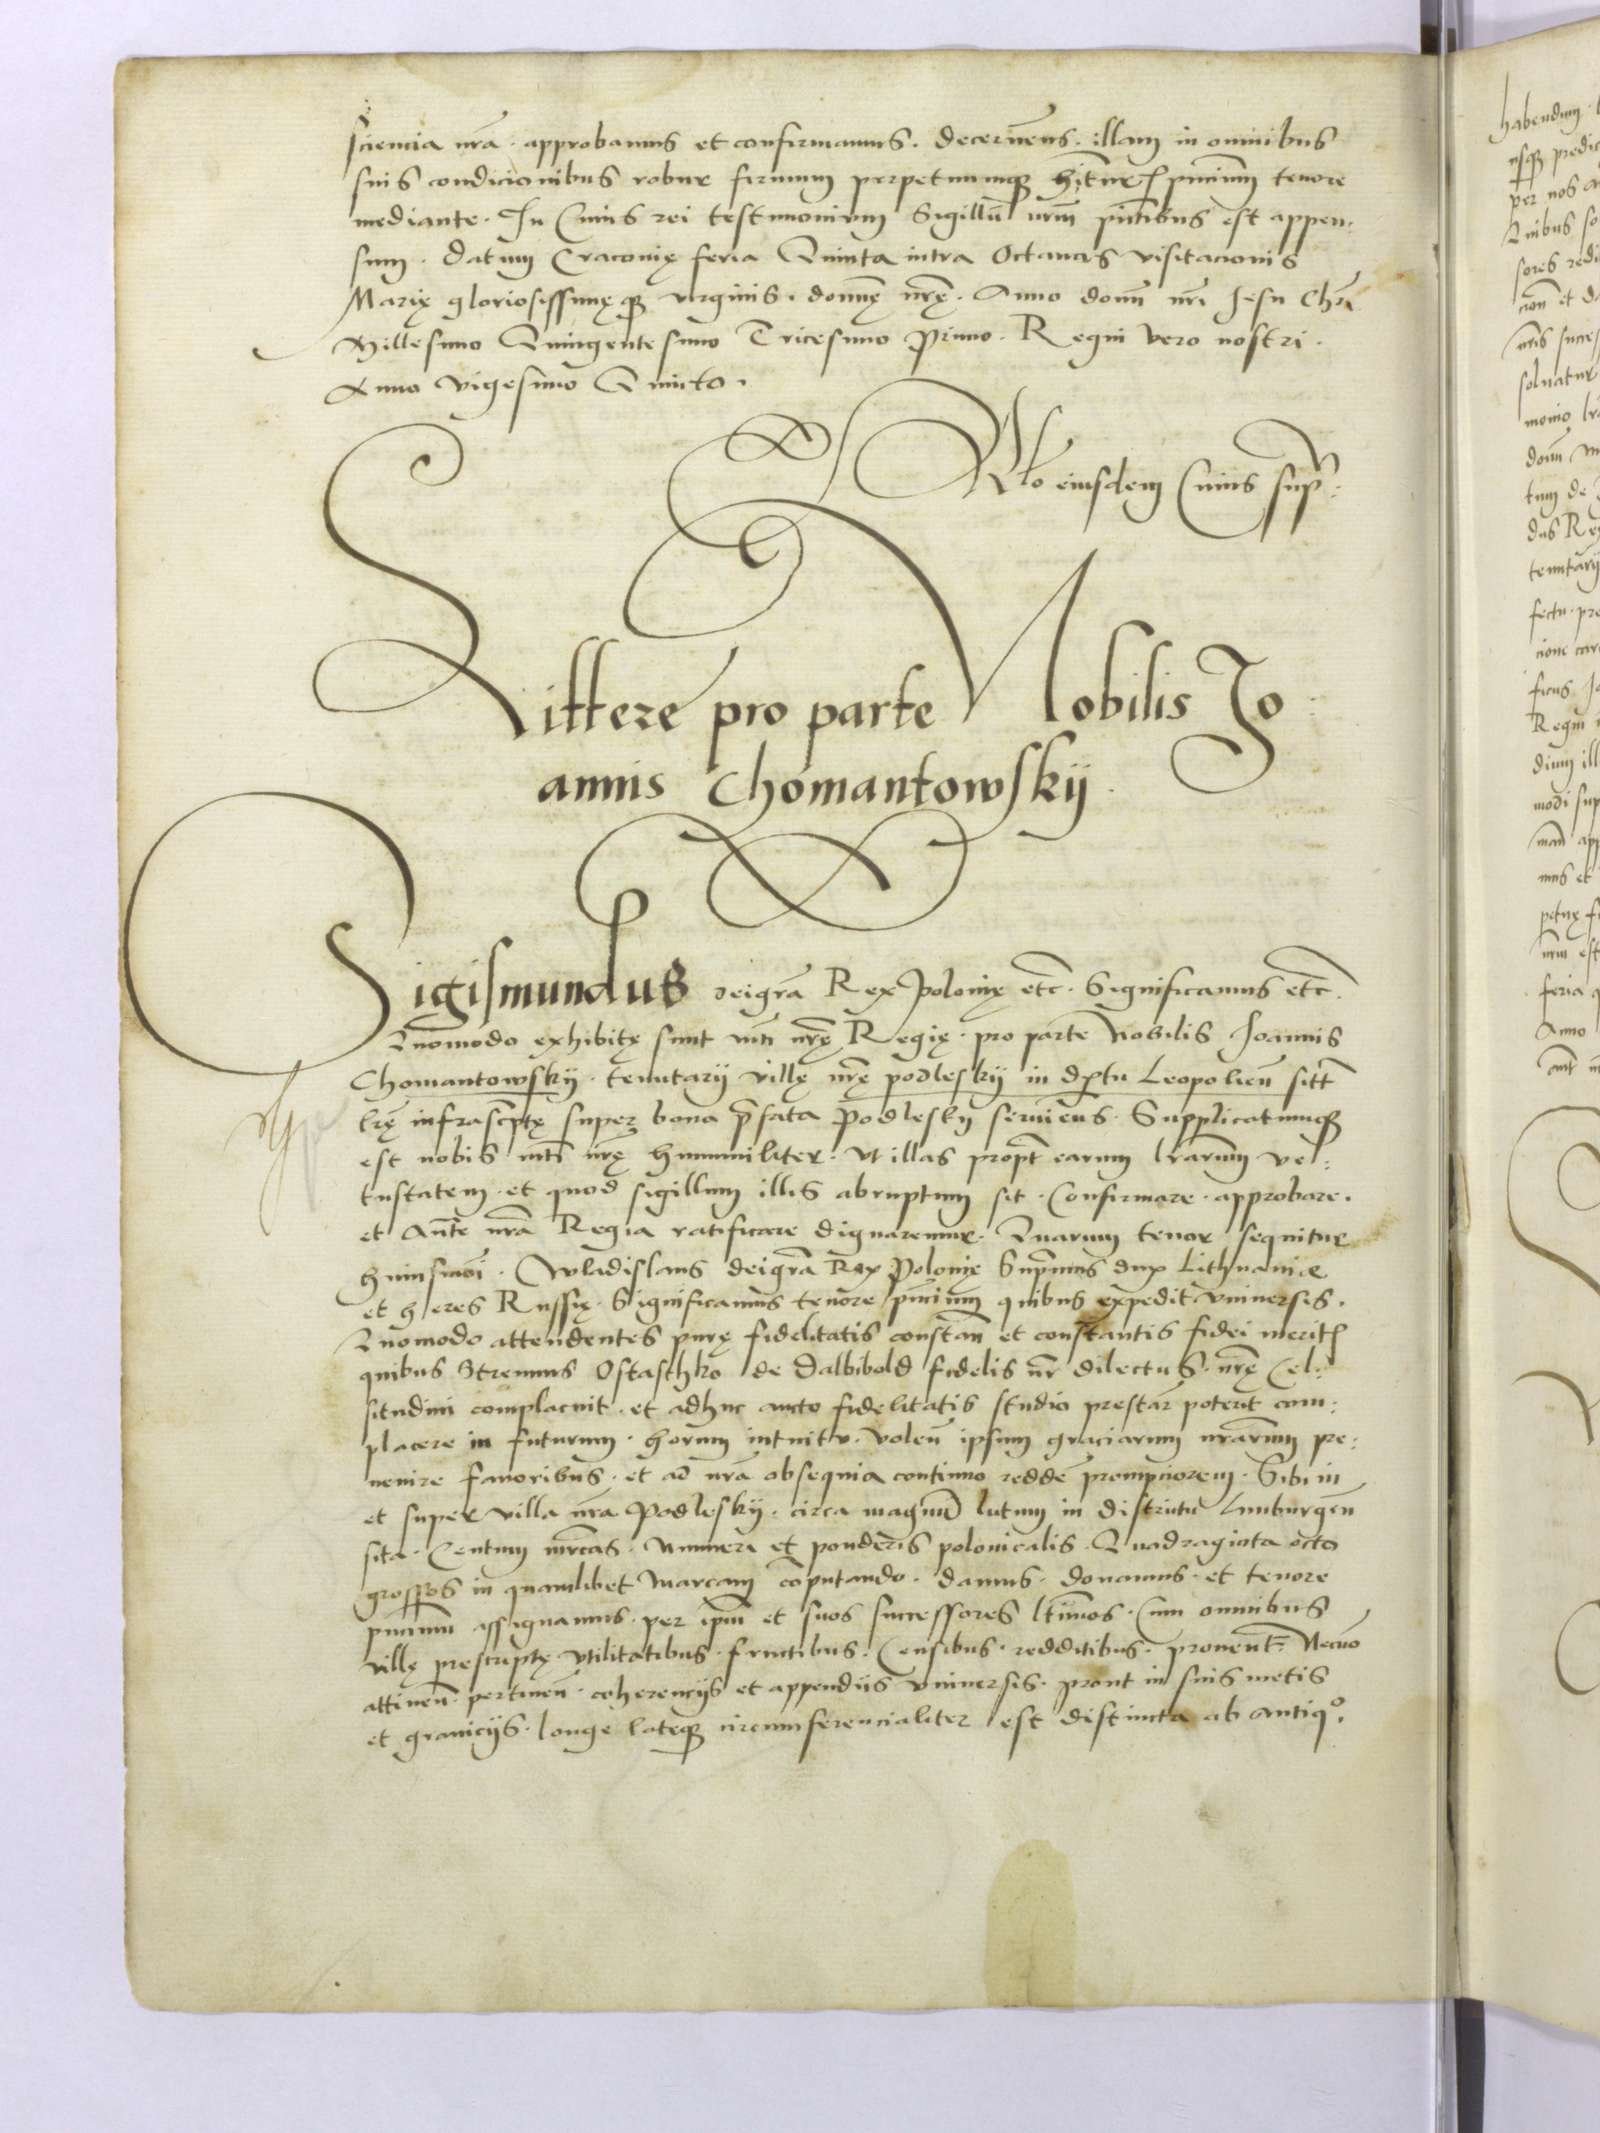 sciencia nrã · approbamus et confirmamus · decernẽns · illam in omnibus
suis condicionibus robur firmum perpetuumq3 tenore
mediante · In Cuius rei testimonium Sigillũ nrm̃ pñtibus est appen·
sum · datum Cracovię feria Quinta intra Octavas visitacionis
Marię gloriosissimęq3 virginis · domnę nrę̃ · Anno domĩ nri Jesu Chri
Millesimo Quingentesimo Tricesimo Primo · Regni vero nostri ·
Anno vigesimo Quinto ·
Rlo eiusdem Cuius sup̃ :
Littere pro parte Nobilis Jo
annis Chomantowskÿ ·
Sigismundus dei grã Rex Polonię etc̃ · Significamus etc̃ ·
Quõmodo exhibitę sunt mtĩ nrę̃ Regię · pro parte Nobilis Joannis
Chomantowskÿ · tenutarÿ villę nrę̃ podleskÿ in dr̃tu Leopolieñ sitt̃
lrę̃ infrascr̃ptę super bona p̃fata Podleskÿ servieñs · Supplicatumq3
est nobis mtĩ nrę̃ hummiliter · ut illas propt̃ earum lrarum̃ ve:
tustatem · et quod sigillum illis abruptum sit · Confirmare · approbare ·
et Auctẽ nrã Regia ratificare dignaremur · Quarum tenor sequitur
huiusmõi · Wladislaus dei grã Rex Polonię Supr̃mus dux Lithuanie
et heres Russię · Significamus tenore pñcium̃ quibus expedit̃ universis ·
Quomodo attendentes purę fidelitatis constañ et constantis fidei merit̃
quibus Strenuus Ostaschko de Dalbibold fidelis nr̃ dilectus · nrę̃ Cel:
situdini complacuit · et adhuc aucto fidelitatis studio prestar̃ poterit com:
placere in futurum · horum intuitu · voleñ ipsum graciarum nrarum̃ pre:
venire favoribus · et ad nrã obsequia continuo reddẽ prompciorem · Sibi in
et super villa nrã Podleskÿ · circa magnũ lutum in districtu Lmburgeñ
sita · Centum mrcas̃ · Numeri et ponderis polonicalis · Quadraginta octo
grossos in quamlibet marcam cõputando · damus · donamus · et tenore
pñcium̃ assignamus · per ipm̃ et suos successores ltĩmos · Cum omnibus
villę prescriptę utilitatibus · fructibus · Censibus · redditibus · provent̃ · Necno
attineñ · pertineñ · coherencÿs et appendiis universis · prout in suis metis
et granicÿs · longe lateq3 circumferencialiter est distincta ab antiqº ·